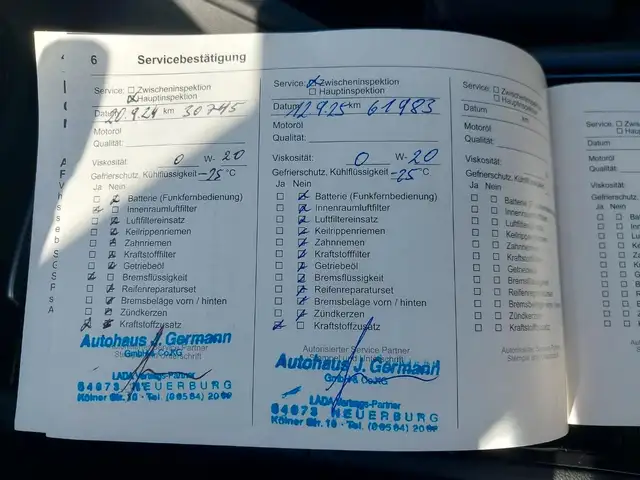 6 Servicebestätigung
Service: Zwischeninspektion
Hauptinspektion
Datum 20.9.24 km 30745
Motoröl
Qualität:
Viskosität: 0 W- 20
Gefrierschutz, Kühlflüssigkeit -25 °C
Ja Nein
Batterie (Funkfernbedienung)
Innenraumluftfilter
Luftfiltereinsatz
Keilrippenriemen
Zahnriemen
Kraftstofffilter
Getriebeöl
Bremsflüssigkeit
Reifenreparaturset
Bremsbeläge vorn / hinten
Zündkerzen
Kraftstoffzusatz
Autohaus J. Germann
GmbH & Co.KG
LADA Vertrags-Partner
54673 NEUERBURG
Kölner Str. 10 · Tel. (06564) 20
Service: Zwischeninspektion
Hauptinspektion
Datum 12.9.25 km 61983
Motoröl
Qualität:
Viskosität: 0 W- 20
Gefrierschutz, Kühlflüssigkeit -25 °C
Ja Nein
Batterie (Funkfernbedienung)
Innenraumluftfilter
Luftfiltereinsatz
Keilrippenriemen
Zahnriemen
Kraftstofffilter
Getriebeöl
Bremsflüssigkeit
Reifenreparaturset
Bremsbeläge vorn / hinten
Zündkerzen
Kraftstoffzusatz
Autorisierter Service Partner
Stempel und Unterschrift
Autohaus J. Germann
GmbH & Co.KG
LADA Vertrags-Partner
54673 NEUERBURG
Kölner Str. 10 · Tel. (06564) 20
Service: Zwischeninspektion
Hauptinspektion
Datum km
Motoröl
Qualität:
Viskosität:
Gefrierschutz, Kühlflüssigkeit
Ja Nein
Batterie
Innenraumluftfilter
Luftfiltereinsatz
Keilrippenriemen
Zahnriemen
Kraftstofffilter
Getriebeöl
Bremsflüssigkeit
Reifenreparaturset
Bremsbeläge vorn / hinten
Zündkerzen
Kraftstoffzusatz
Autorisierter Service
Stempel und
Service:
Datum
Motoröl
Qualität:
Viskosität:
Gefrierschutz,
Ja Nein